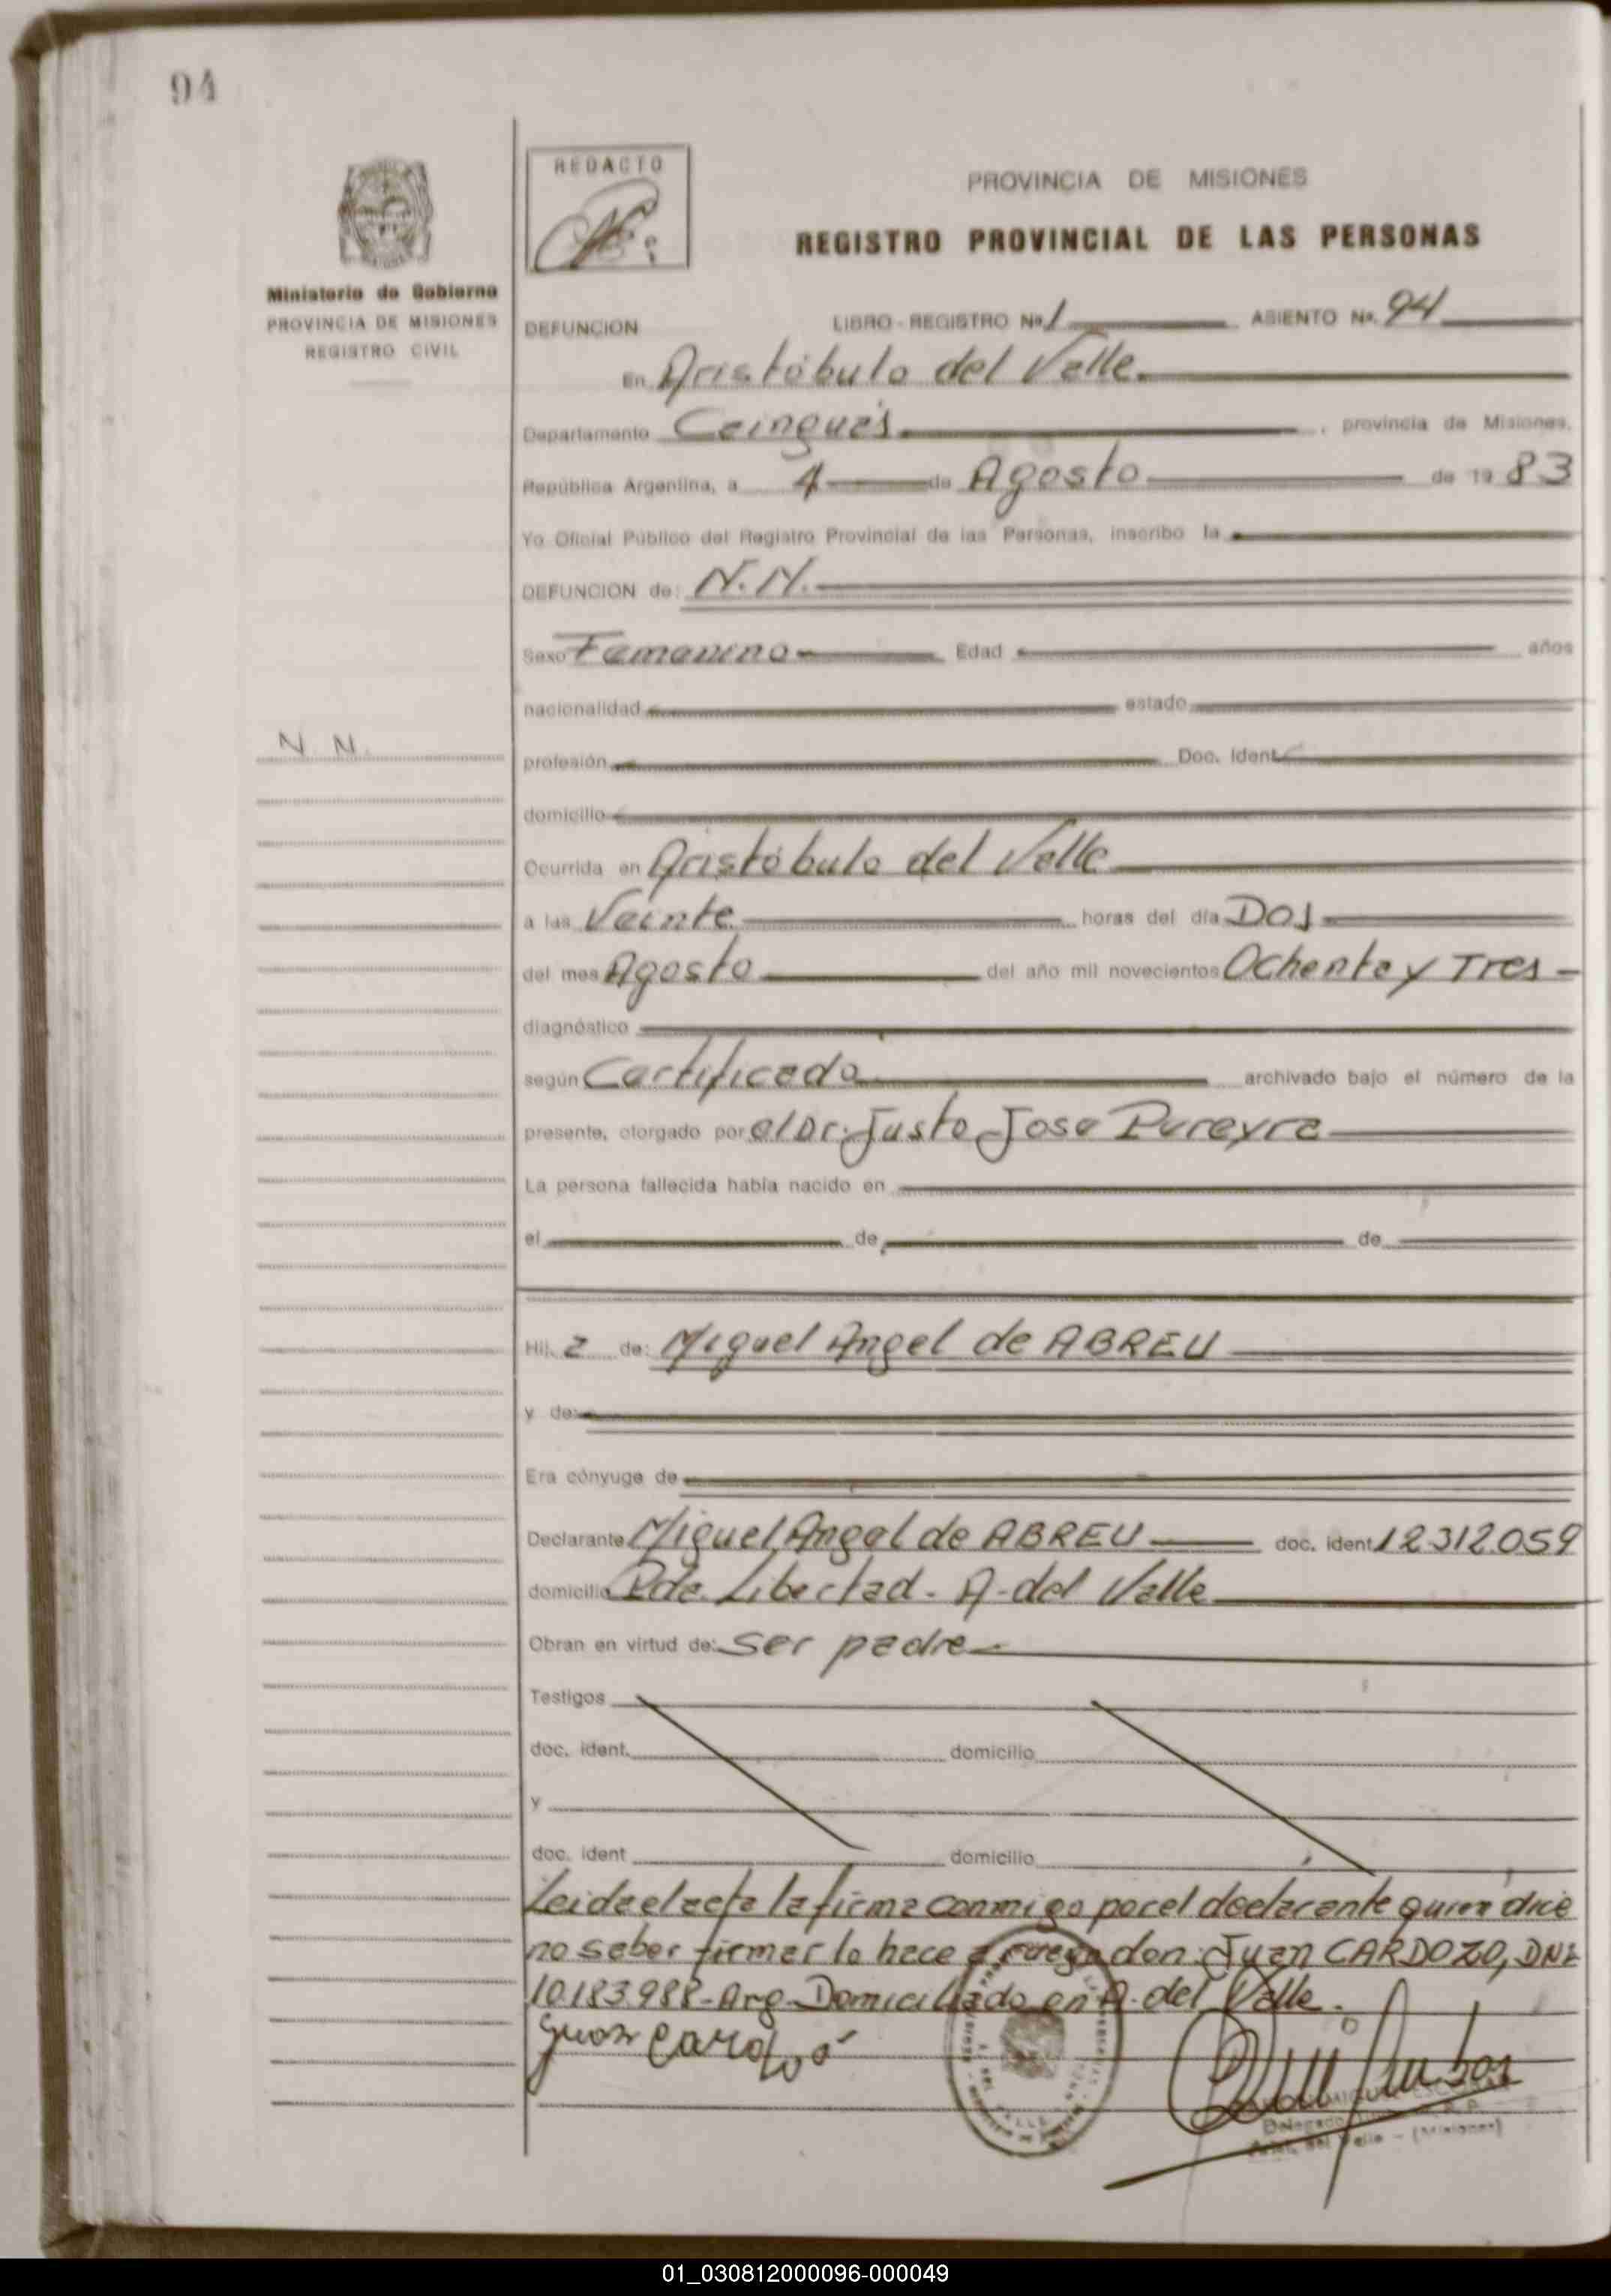 94
REDACTO
PROVINCIA DE MISIONES
REGISTRO PROVINCIAL DE LAS PERSONAS
Ministerio de Gobierno
PROVINCIA DE MISIONES
REGISTRO CIVIL
DEFUNCION LIBRO - REGISTRO Nº 1 ASIENTO Nº. 94
En Aristóbulo del Valle.
Departamento Cainguás. , provincia de Misiones,
República Argentina, a 4 de Agosto de 19 83
Yo Oficial Público del Registro Provincial de las Personas, inscribo la
DEFUNCION de: N.N.
Sexo Femenino Edad años
nacionalidad estado
N N.
profesión Doc. Ident
domicilio
Ocurrida en Aristóbulo del Valle
a las Veinte horas del día Dos
del mes Agosto del año mil novecientos Ochenta y Tres -
diagnóstico
según Certificado archivado bajo el número de la
presente, otorgado por el Dr. Justo Jose Pereyra
La persona fallecida había nacido en
el de de
Hij a de: Miguel Angel de ABREU
y de:
Era cónyuge de
Declarante Miguel Angel de ABREU doc. ident 12.312.059
domicilio Pde. Libertad - A. del Valle
Obran en virtud de: Ser padre
Testigos
doc. ident. domicilio
y
doc. ident domicilio
Leida el acta la firma conmigo por el declarante quien dice
no saber firmar lo hace a ruego don: Juan CARDOZO, DNI
10.183.988-Arg-Domiciliado en A. del Valle.
Juan Cardozo
Delegado
Arist. del Valle - (Misiones)
01_030812000096-000049